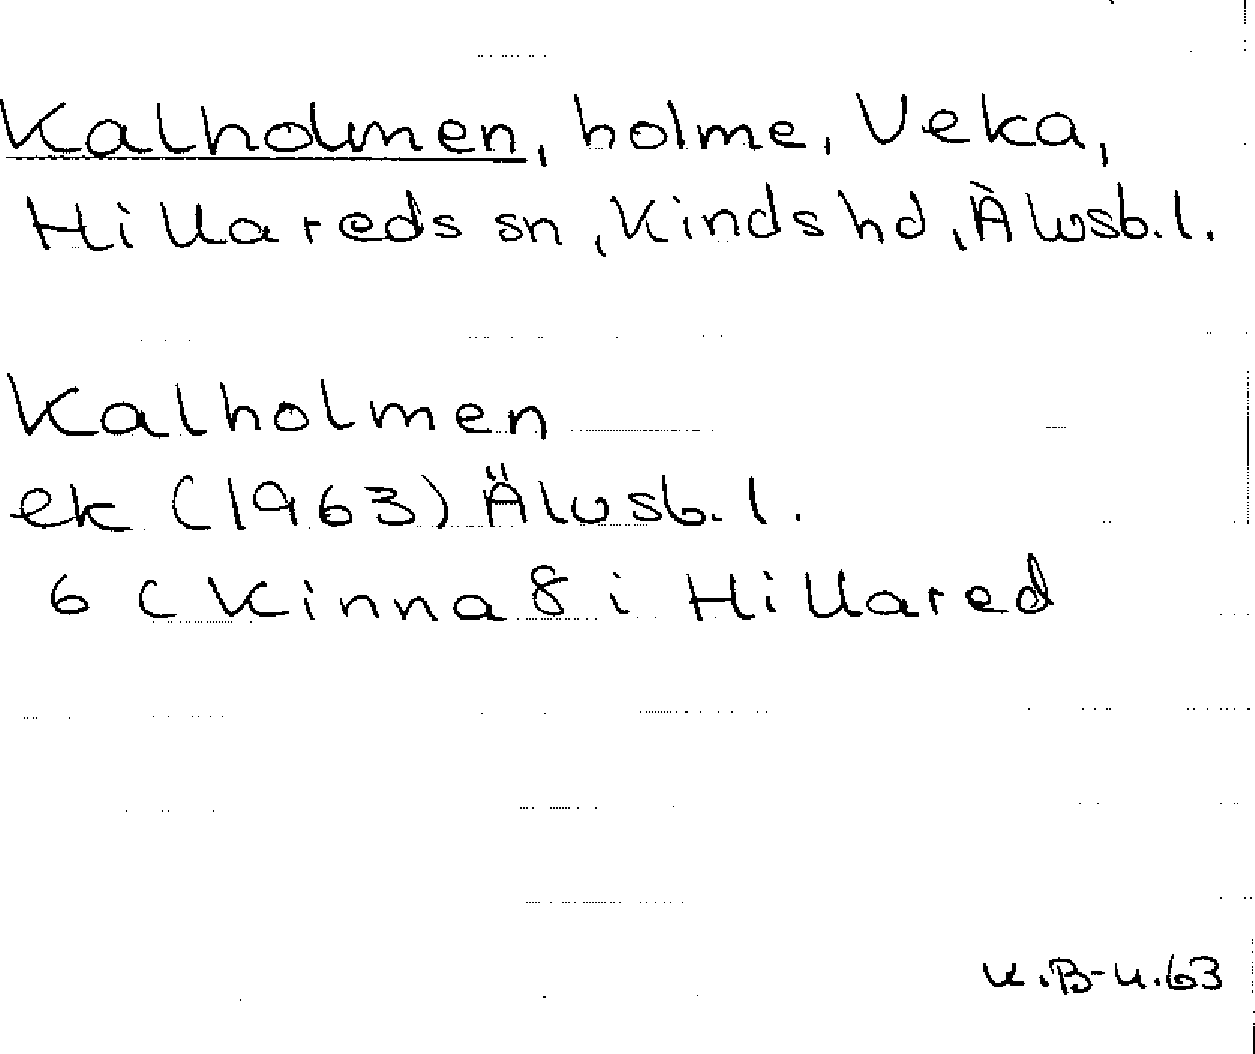 Kalholmen, holme, Veka,
Hillareds sn, Kinds hd, Älvsb. l.
Kalholmen
ek (1963) Älvsb. l.
6 C Kinna 8 i Hillared
K.B-u.63